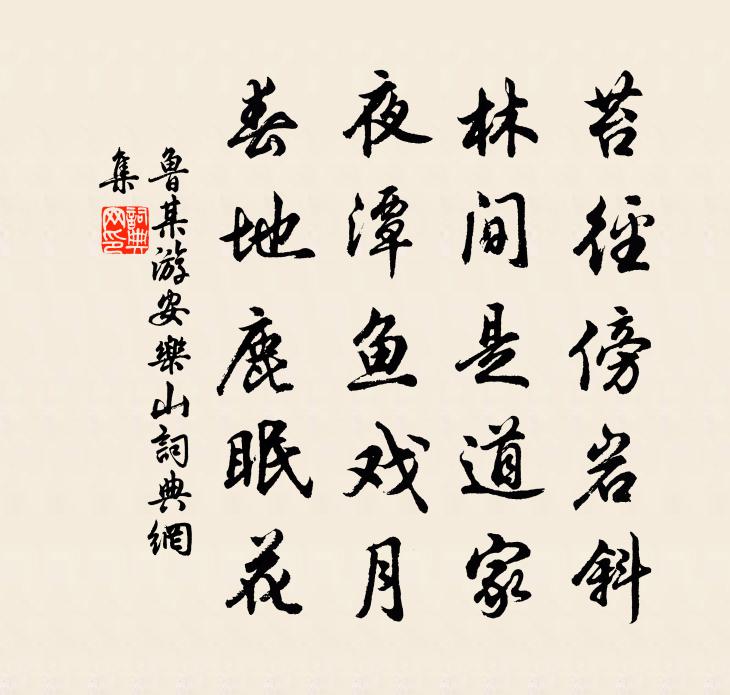 苔徑傍岩斜
林间是道家
夜潭鱼戏月
春地鹿眠花
鲁某游安樂山詞典網
集
詞典
网印